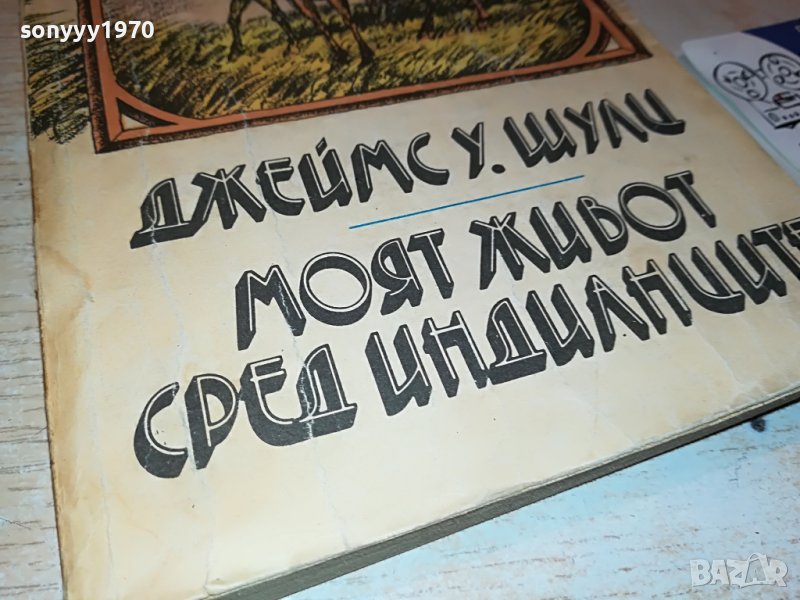 sonyyy1970
ДЖЕЙМС У. ШУЛЦ
МОЯТ ЖИВОТ
СРЕД ИНДИАНЦИТЕ
BAZAR